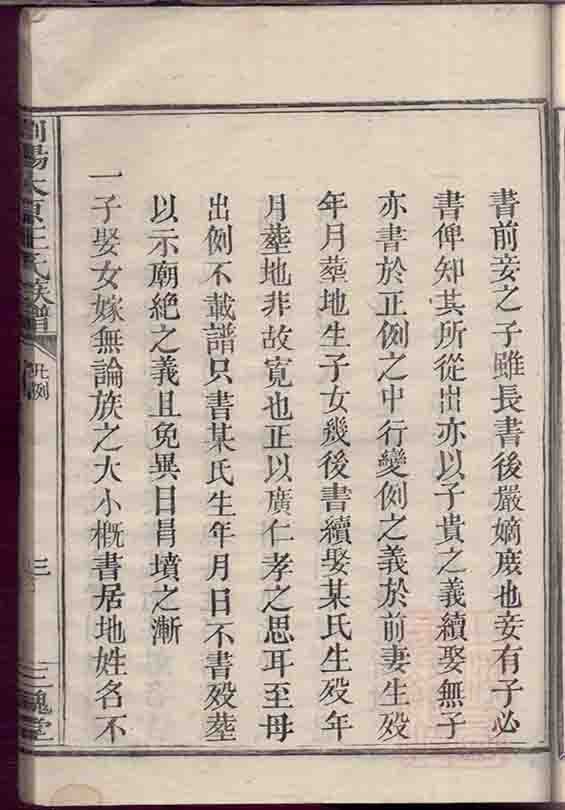 書前妾之子雖長書後嚴嫡庻也妾有子必
書俾知其所從出亦以子貴之義續娶無子
亦書於正例之中行變例之義於前妻生殁
年月塟地生子女幾後書續娶某氏生殁年
月塟地非故寛也正以廣仁孝之思耳至母
出例不載譜只書某氏生年月日不書殁塟
以示廟絶之義且免異日昌墳之漸
一子娶女嫁無論族之大小概書居地姓名不
瀏陽太原王氏族譜
凡例
三
三槐堂